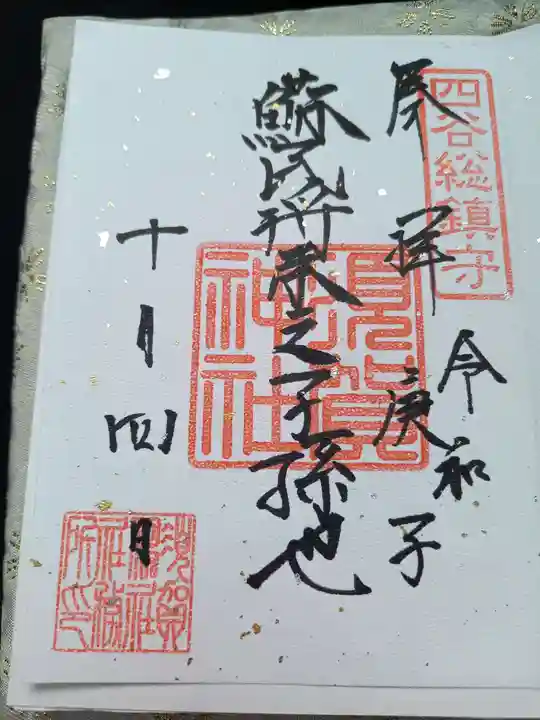 四谷総鎮守
奉拝
令和
庚子
須賀神社
蘇民将来之子孫也
十月四日
須賀神社社務所印